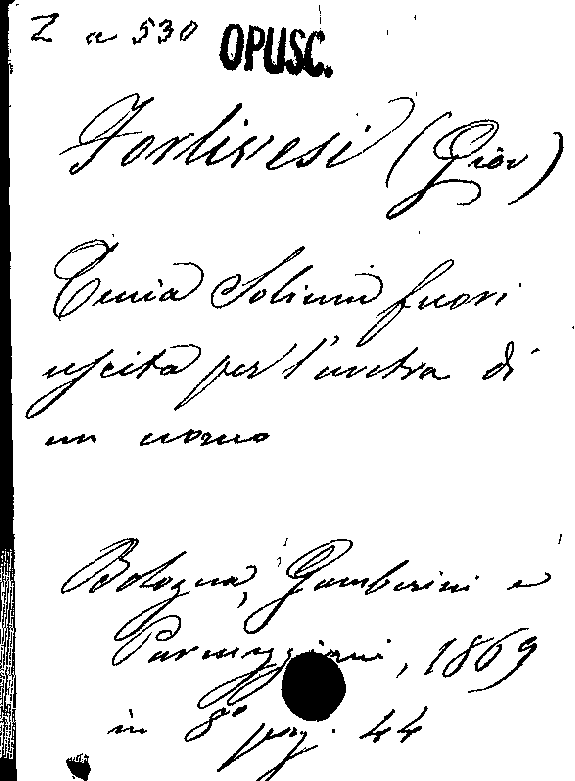 Z a 530 OPUSC.
Forlivesi (Giov)
Tenia Solium fuori
uscita per l'uretra di
un uomo
Bologna, Gamberini e
Parmeggiani, 1869
in 8° pag. 44